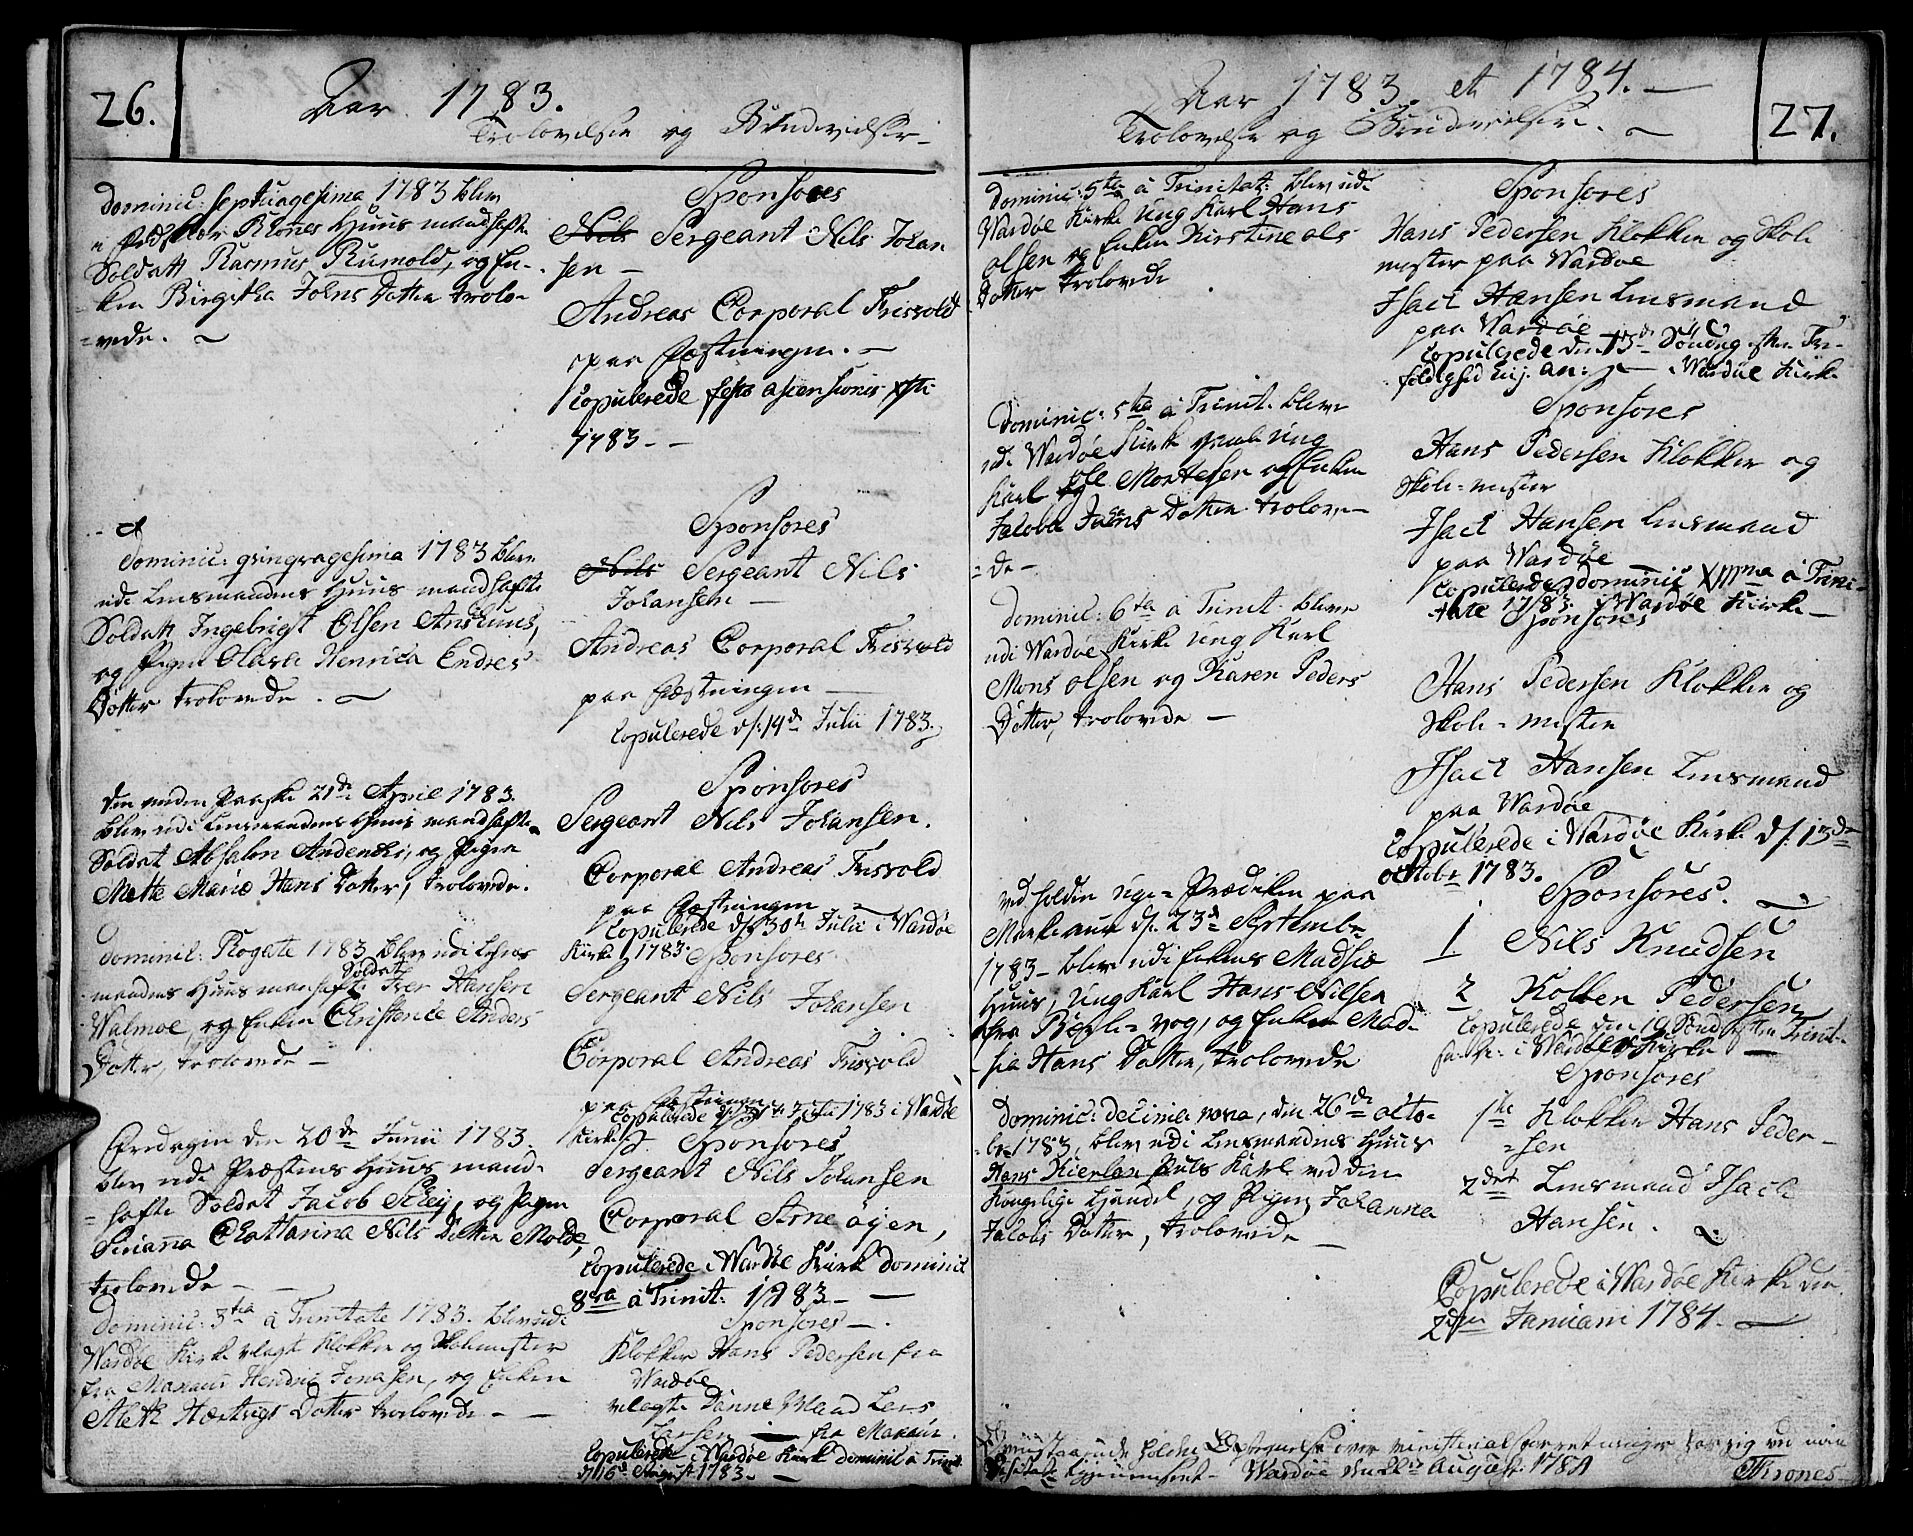 26.
Aar 1783.
Trolovelse og Brudevielser
Dominic: Septuagesima 1783 blev
Huus mandhafte
Soldatt Rasmus Rumold, og En-
ken Birgitha Johns Datter trolo-
=vede.
Sponsores
Nils Sergeant Nils Johan
sen
Andreas Corporal Frisvold
paa Fæstningen.
Copulerede festo ascensionis xsti
1783
Dominic: qvinqvagesima 1783 blev
udi Lensmandens Huus mandhafte
Soldatt Ingebrigt Olsen
og Pigen Henrica Endres
Dotter trolovede.
Sponsores
Nils Sergeant Nils
Johansen
Andreas Corporal Frisvold
paa Fæstningen
Copulerede d: 14de Julii 1783.
Den anden Paaske 21de April 1783.
blev udi Lensmandens Huus mandhafte
Soldat Absalon og Pigen
Mette Marie Hans Datter, trolovede.
Sponsores
Sergeant Nils Johansen.
Corporal Andreas Frisvold
paa Fæstningen
Copulerede d: 30te Julii i Wardøe
Kirke 1783.
Dominic: Rogate 1783 blev udi Lens
mandens Huus manhafte Soldat Iver Hansen
Walmoe, og Enken Christence Anders
Dotter, trolovede
Sponsores
Sergeant Nils Johansen
Corporal Andreas Frisvold
paa Fæstningen
Copulerede Julii 1783 i Wardøe
Kirke
Fredagen den 20de Junii 1783.
blev udi Præstens Huus mand-
=hafte Soldat Jacob og Pigen
Siriana Chattarina Nils Datter Molde,
trolovede
Sponsores
Sergeant Nils Johansen
Corporal Arne Øyen,
Copulerede i Wardøe Kirke Dominic
8va à Trinit: 1783
Dominic: 3tia à Trinitate 1783. blev udi
Wardøe Kirke vlagt Klokker og Skolemester
fra Makaur Hendric Jonasen, og Enken
Aleth Hertvigs Datter trolovede
Sponsores
Klokker Hans Pedersen fra
Wardøe
vlagte Danne Mand Lars
Larsen fra Makaur.
Copulerede i Wardøe Kirke Dominic à Trinit.
August 1783.
Aar 1783. et 1784.
Trolovelse og Brudevielser.
27.
Dominic: 5ta à Trinitat: blev udi
Wardøe Kirke Ung Karl Hans
Olsen og Enken Kirstine Ols
Dotter trolovede
Sponsores
Hans Pedersen Klokker og Skole
mester paa Wardøe
Isach Hansen Lensmand
paa Wardøe
Copulerede den 13de Søndag efter Tre-
foldighed i Wardøe Kirke
Dominic: 5ta à Trinit. bleve
udi Wardøe Kirke Ung
Karl Ole Mortesen og Enken
Jacoba Jens Datter trolove-
=de
Sponsores
Hans Pedersen Klokker og
Skole=mester
Isach Hansen Lensmand
paa Wardøe
Copulerede Dominic XIIIma à Trini-
tate 1783. i Wardøe Kirke
Dominic: 6ta à Trinit: bleve
udi Wardøe Kirke Ung Karl
Mons Olsen og Karen Peders
Dotter, trolovede
Sponsores
Hans Pedersen Klokker og
Skole=mester
Isach Hansen Lensmand
paa Wardøe
Copulerede i Wardøe Kirke d: 13de
Octobr 1783.
ved holden Uge=Prædiken paa
Makaur d: 23de Septembr
1783 blev udi Enkens Madsiæ
Huus, Ung Karl Hans Nilsen
fra og Enken Mad-
sia Hans Datter, trolovede
Sponsores.
1 Nils Knudsen
2 Kolben Pedersen
Copulerede den 19 Sønd: efter Trinit-
i Wardøe Kirke
Dominic: decima nona, den 26de octo-
br 1783, blev udi Lensmandens Huus
Hans Karl ved den
Kongelige Handel, og Pigen Johanna
Jacobs Datter, trolovede
Sponsores
1te Klokker Hans Peder-
=sen
2det Lensmand Isach
Hansen.
Copulerede i Wardøe Kirke den
2den Januari 1784.
over ministerial ved min
Wardøe den August: 1784